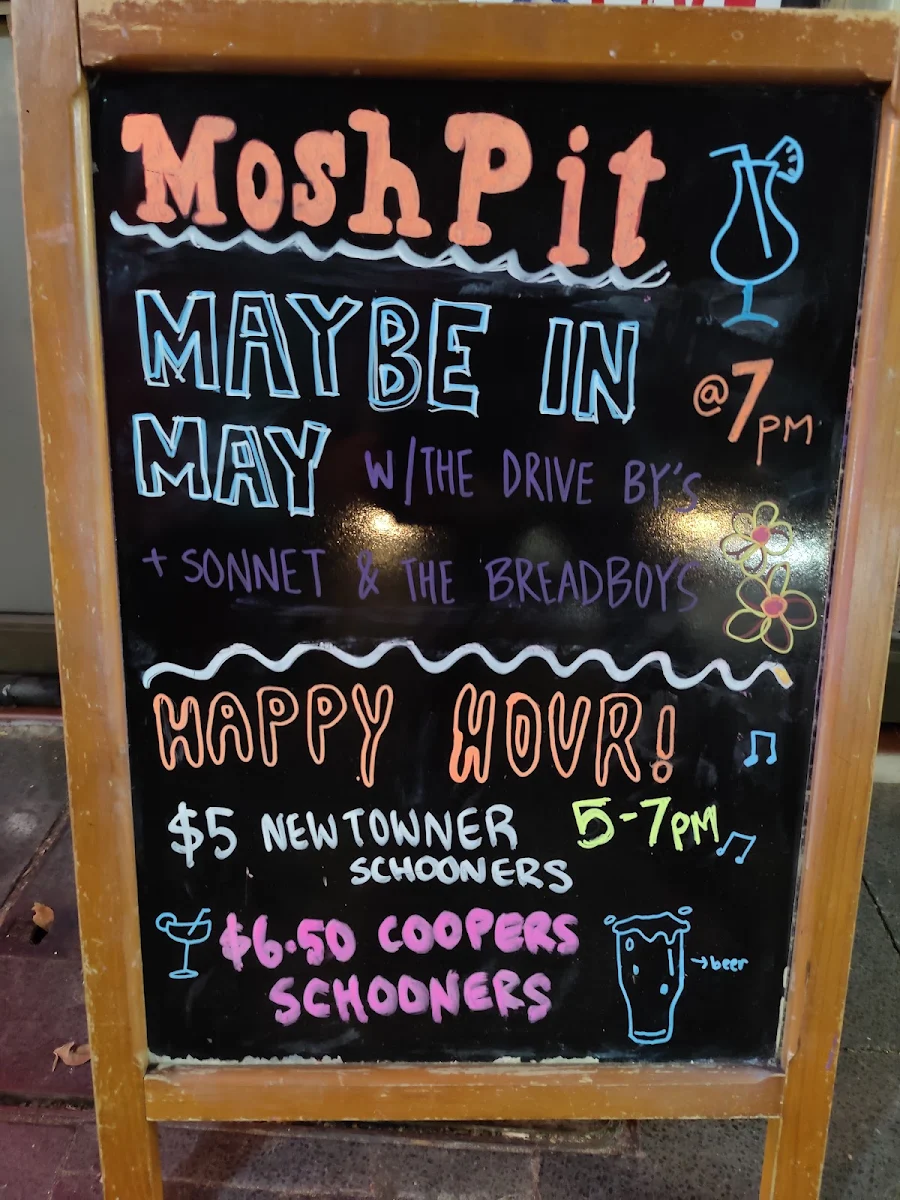 Mosh Pit
MAYBE IN
@7PM
MAY W/THE DRIVE BY'S
+ SONNET & THE BREADBOYS
HAPPY HOUR!
$5 NEWTOWNER 5-7PM
SCHOONERS
$6.50 COOPERS
SCHOONERS
→beer